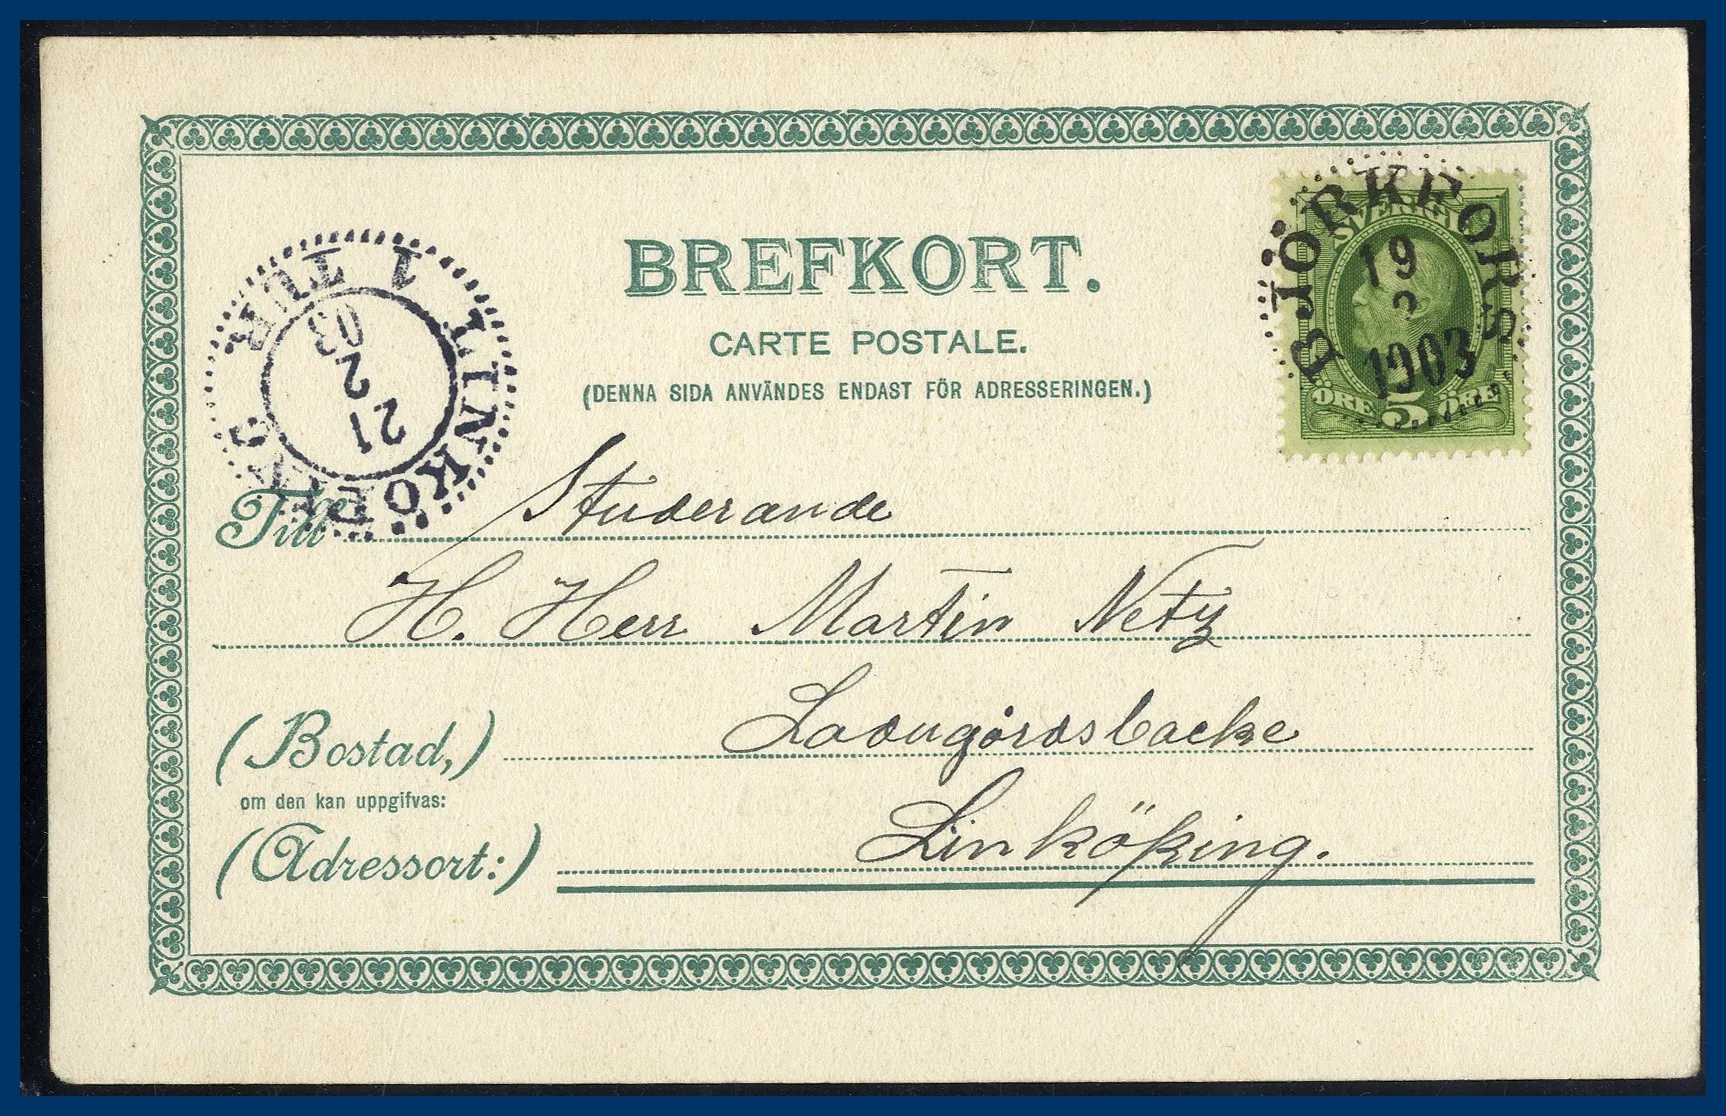 BREFKORT.
CARTE POSTALE.
(DENNA SIDA ANVÄNDES ENDAST FÖR ADRESSERINGEN.)
SVERIGE
ÖRE 5 ÖRE
BJÖRKFORS
19
2
1903
LINKÖPING
1 TUR
21
2
03
Till Studerande
H. Herr Martin Netz
(Bostad,) Ladugårdsbacke
om den kan uppgifvas:
(Adressort:) Linköping.